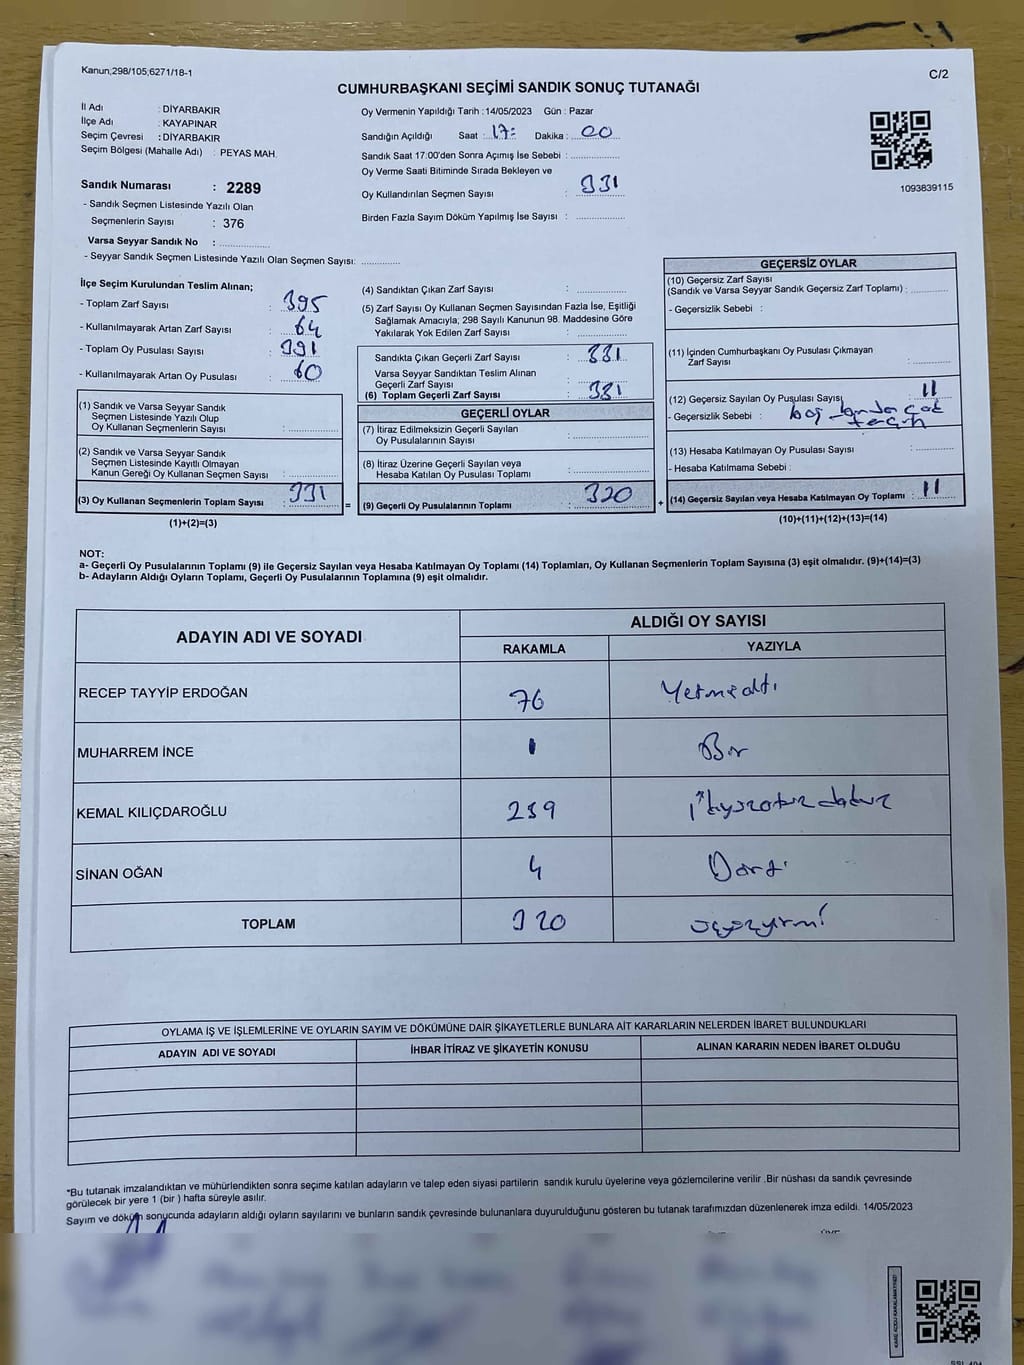 Kanun;298/105;6271/18-1
C/2
CUMHURBAŞKANI SEÇİMİ SANDIK SONUÇ TUTANAĞI
İl Adı : DİYARBAKIR
İlçe Adı : KAYAPINAR
Seçim Çevresi : DİYARBAKIR
Seçim Bölgesi (Mahalle Adı) : PEYAS MAH.
Sandık Numarası : 2289
- Sandık Seçmen Listesinde Yazılı Olan
Seçmenlerin Sayısı : 376
Varsa Seyyar Sandık No :
- Seyyar Sandık Seçmen Listesinde Yazılı Olan Seçmen Sayısı:
Oy Vermenin Yapıldığı Tarih : 14/05/2023 Gün : Pazar
Sandığın Açıldığı Saat : 17: Dakika : 00
Sandık Saat 17:00'den Sonra Açımış İse Sebebi :
Oy Verme Saati Bitiminde Sırada Bekleyen ve
Oy Kullandırılan Seçmen Sayısı : 331
Birden Fazla Sayım Döküm Yapılmış İse Sayısı :
1093839115
İlçe Seçim Kurulundan Teslim Alınan;
- Toplam Zarf Sayısı : 395
- Kullanılmayarak Artan Zarf Sayısı : 64
- Toplam Oy Pusulası Sayısı : 391
- Kullanılmayarak Artan Oy Pusulası : 60
(1) Sandık ve Varsa Seyyar Sandık
Seçmen Listesinde Yazılı Olup
Oy Kullanan Seçmenlerin Sayısı :
(2) Sandık ve Varsa Seyyar Sandık
Seçmen Listesinde Kayıtlı Olmayan
Kanun Gereği Oy Kullanan Seçmen Sayısı :
(3) Oy Kullanan Seçmenlerin Toplam Sayısı : 331
(1)+(2)=(3)
=
(4) Sandıktan Çıkan Zarf Sayısı :
(5) Zarf Sayısı Oy Kullanan Seçmen Sayısından Fazla İse, Eşitliği
Sağlamak Amacıyla; 298 Sayılı Kanunun 98. Maddesine Göre
Yakılarak Yok Edilen Zarf Sayısı :
Sandıkta Çıkan Geçerli Zarf Sayısı : 331
Varsa Seyyar Sandıktan Teslim Alınan
Geçerli Zarf Sayısı :
(6) Toplam Geçerli Zarf Sayısı : 331
GEÇERLİ OYLAR
(7) İtiraz Edilmeksizin Geçerli Sayılan
Oy Pusulalarının Sayısı :
(8) İtiraz Üzerine Geçerli Sayılan veya
Hesaba Katılan Oy Pusulası Toplamı :
(9) Geçerli Oy Pusulalarının Toplamı : 320
+
GEÇERSİZ OYLAR
(10) Geçersiz Zarf Sayısı
(Sandık ve Varsa Seyyar Sandık Geçersiz Zarf Toplamı) :
- Geçersizlik Sebebi :
(11) İçinden Cumhurbaşkanı Oy Pusulası Çıkmayan
Zarf Sayısı :
(12) Geçersiz Sayılan Oy Pusulası Sayısı 11
- Geçersizlik Sebebi :
(13) Hesaba Katılmayan Oy Pusulası Sayısı :
- Hesaba Katılmama Sebebi :
(14) Geçersiz Sayılan veya Hesaba Katılmayan Oy Toplamı : 11
(10)+(11)+(12)+(13)=(14)
NOT:
a- Geçerli Oy Pusulalarının Toplamı (9) ile Geçersiz Sayılan veya Hesaba Katılmayan Oy Toplamı (14) Toplamları, Oy Kullanan Seçmenlerin Toplam Sayısına (3) eşit olmalıdır. (9)+(14)=(3)
b- Adayların Aldığı Oyların Toplamı, Geçerli Oy Pusulalarının Toplamına (9) eşit olmalıdır.
ADAYIN ADI VE SOYADI ALDIĞI OY SAYISI
RAKAMLA YAZIYLA
RECEP TAYYİP ERDOĞAN 76 Yetmişaltı
MUHARREM İNCE 1 Bir
KEMAL KILIÇDAROĞLU 239
SİNAN OĞAN 4 Dört
TOPLAM 320 üçyüzyirmi
OYLAMA İŞ VE İŞLEMLERİNE VE OYLARIN SAYIM VE DÖKÜMÜNE DAİR ŞİKAYETLERLE BUNLARA AİT KARARLARIN NELERDEN İBARET BULUNDUKLARI
ADAYIN ADI VE SOYADI İHBAR İTİRAZ VE ŞİKAYETİN KONUSU ALINAN KARARIN NEDEN İBARET OLDUĞU
*Bu tutanak imzalandıktan ve mühürlendikten sonra seçime katılan adayların ve talep eden siyasi partilerin sandık kurulu üyelerine veya gözlemcilerine verilir .Bir nüshası da sandık çevresinde
görülecek bir yere 1 (bir ) hafta süreyle asılır.
Sayım ve döküm sonucunda adayların aldığı oyların sayılarını ve bunların sandık çevresinde bulunanlara duyurulduğunu gösteren bu tutanak tarafımızdan düzenlenerek imza edildi. 14/05/2023